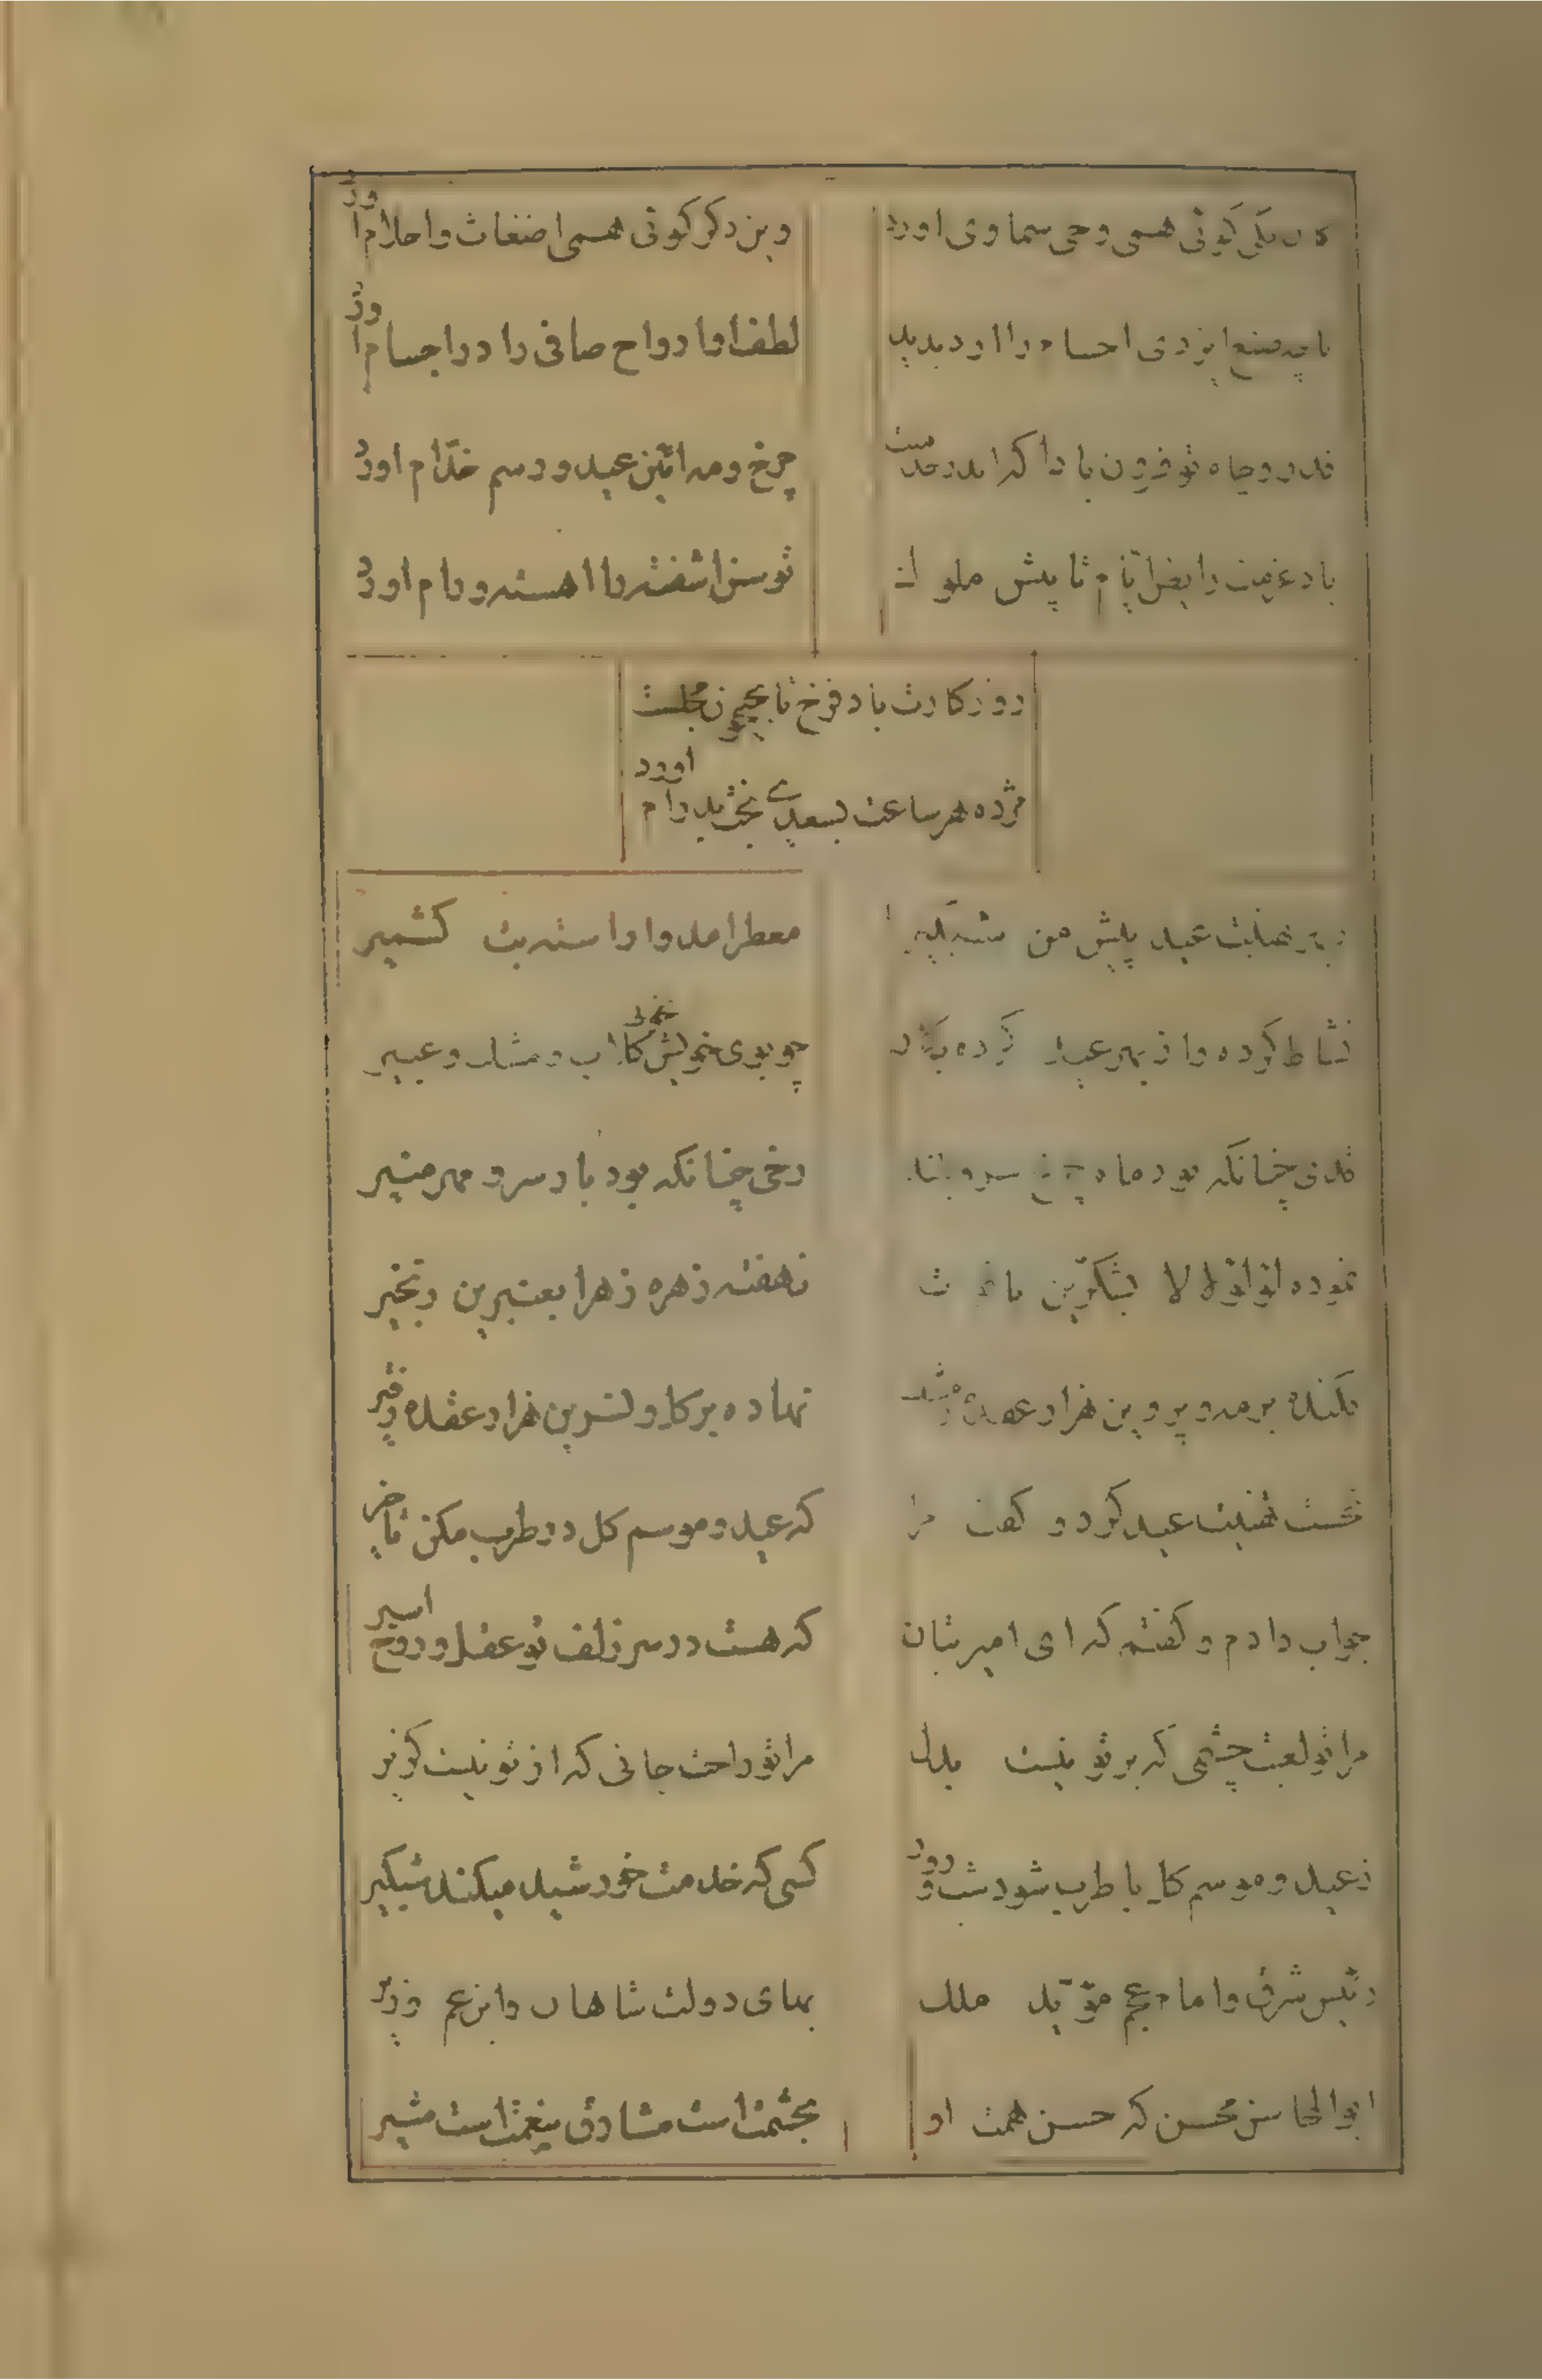 یکی کوئی همی وحی سماوی اورد
وین دکر کوئی همی اضغاث و احلام اورد
صنع ایزدی اجسام را ارد بدید
لطف او ارواح صافی را در اجسام اورد
قدر و جاه تو فزون بادا که اندر خدمتت
چرخ و مه ائین عبید و رسم خدّام اورد
باد عزمت را بقا ایّام تا پیش ملوک
توسن اشفته را اهسته و رام اورد
روزکارت باد فرخ تا بجیحون مجلست
مژده هر ساعت بسعدی بخت پدرام اورد
تهنیت عید پیش من شبکیر
معطر امد و اراسته بت کشمیر
نشاط کرده و از بهر عید کرده بکار
چو بوی خویش کلاب و مشک و عبیر
قدی چنانکه بود ماه چرخ سرو بلند
رخی چنانکه بود بار سرو مهر منیر
نموده لؤلؤ لالا بشکرین
نهفته زهره زهرا بعنبرین زنجیر
فکنده بر مه و پروین هزار عقده ز مشک
نهاده بر کل و نسرین هزار عقده ز قیر
نخست تهنیت عید کرد و کفت مرا
که عید و موسم کل در طرب مکن تاخیر
جواب دادم و کفتم که ای امیر بتان
که هست در سر زلف تو عقل و روح اسیر
مرا تو لعبت چشمی که بر تو نیست بدل
مرا تو راحت جانی که از تو نیست کزیر
ز عید و موسم کل با طرب شود شب و روز
کسی که خدمت خورشید میکند شبکیر
رئیس شرق و امام عجم مؤید ملک
بهای دولت شاهان و ابن عم وزیر
ابوالمحاسن محسن که حسن همت او
بحشمت است مشار و بنعمت است مشیر